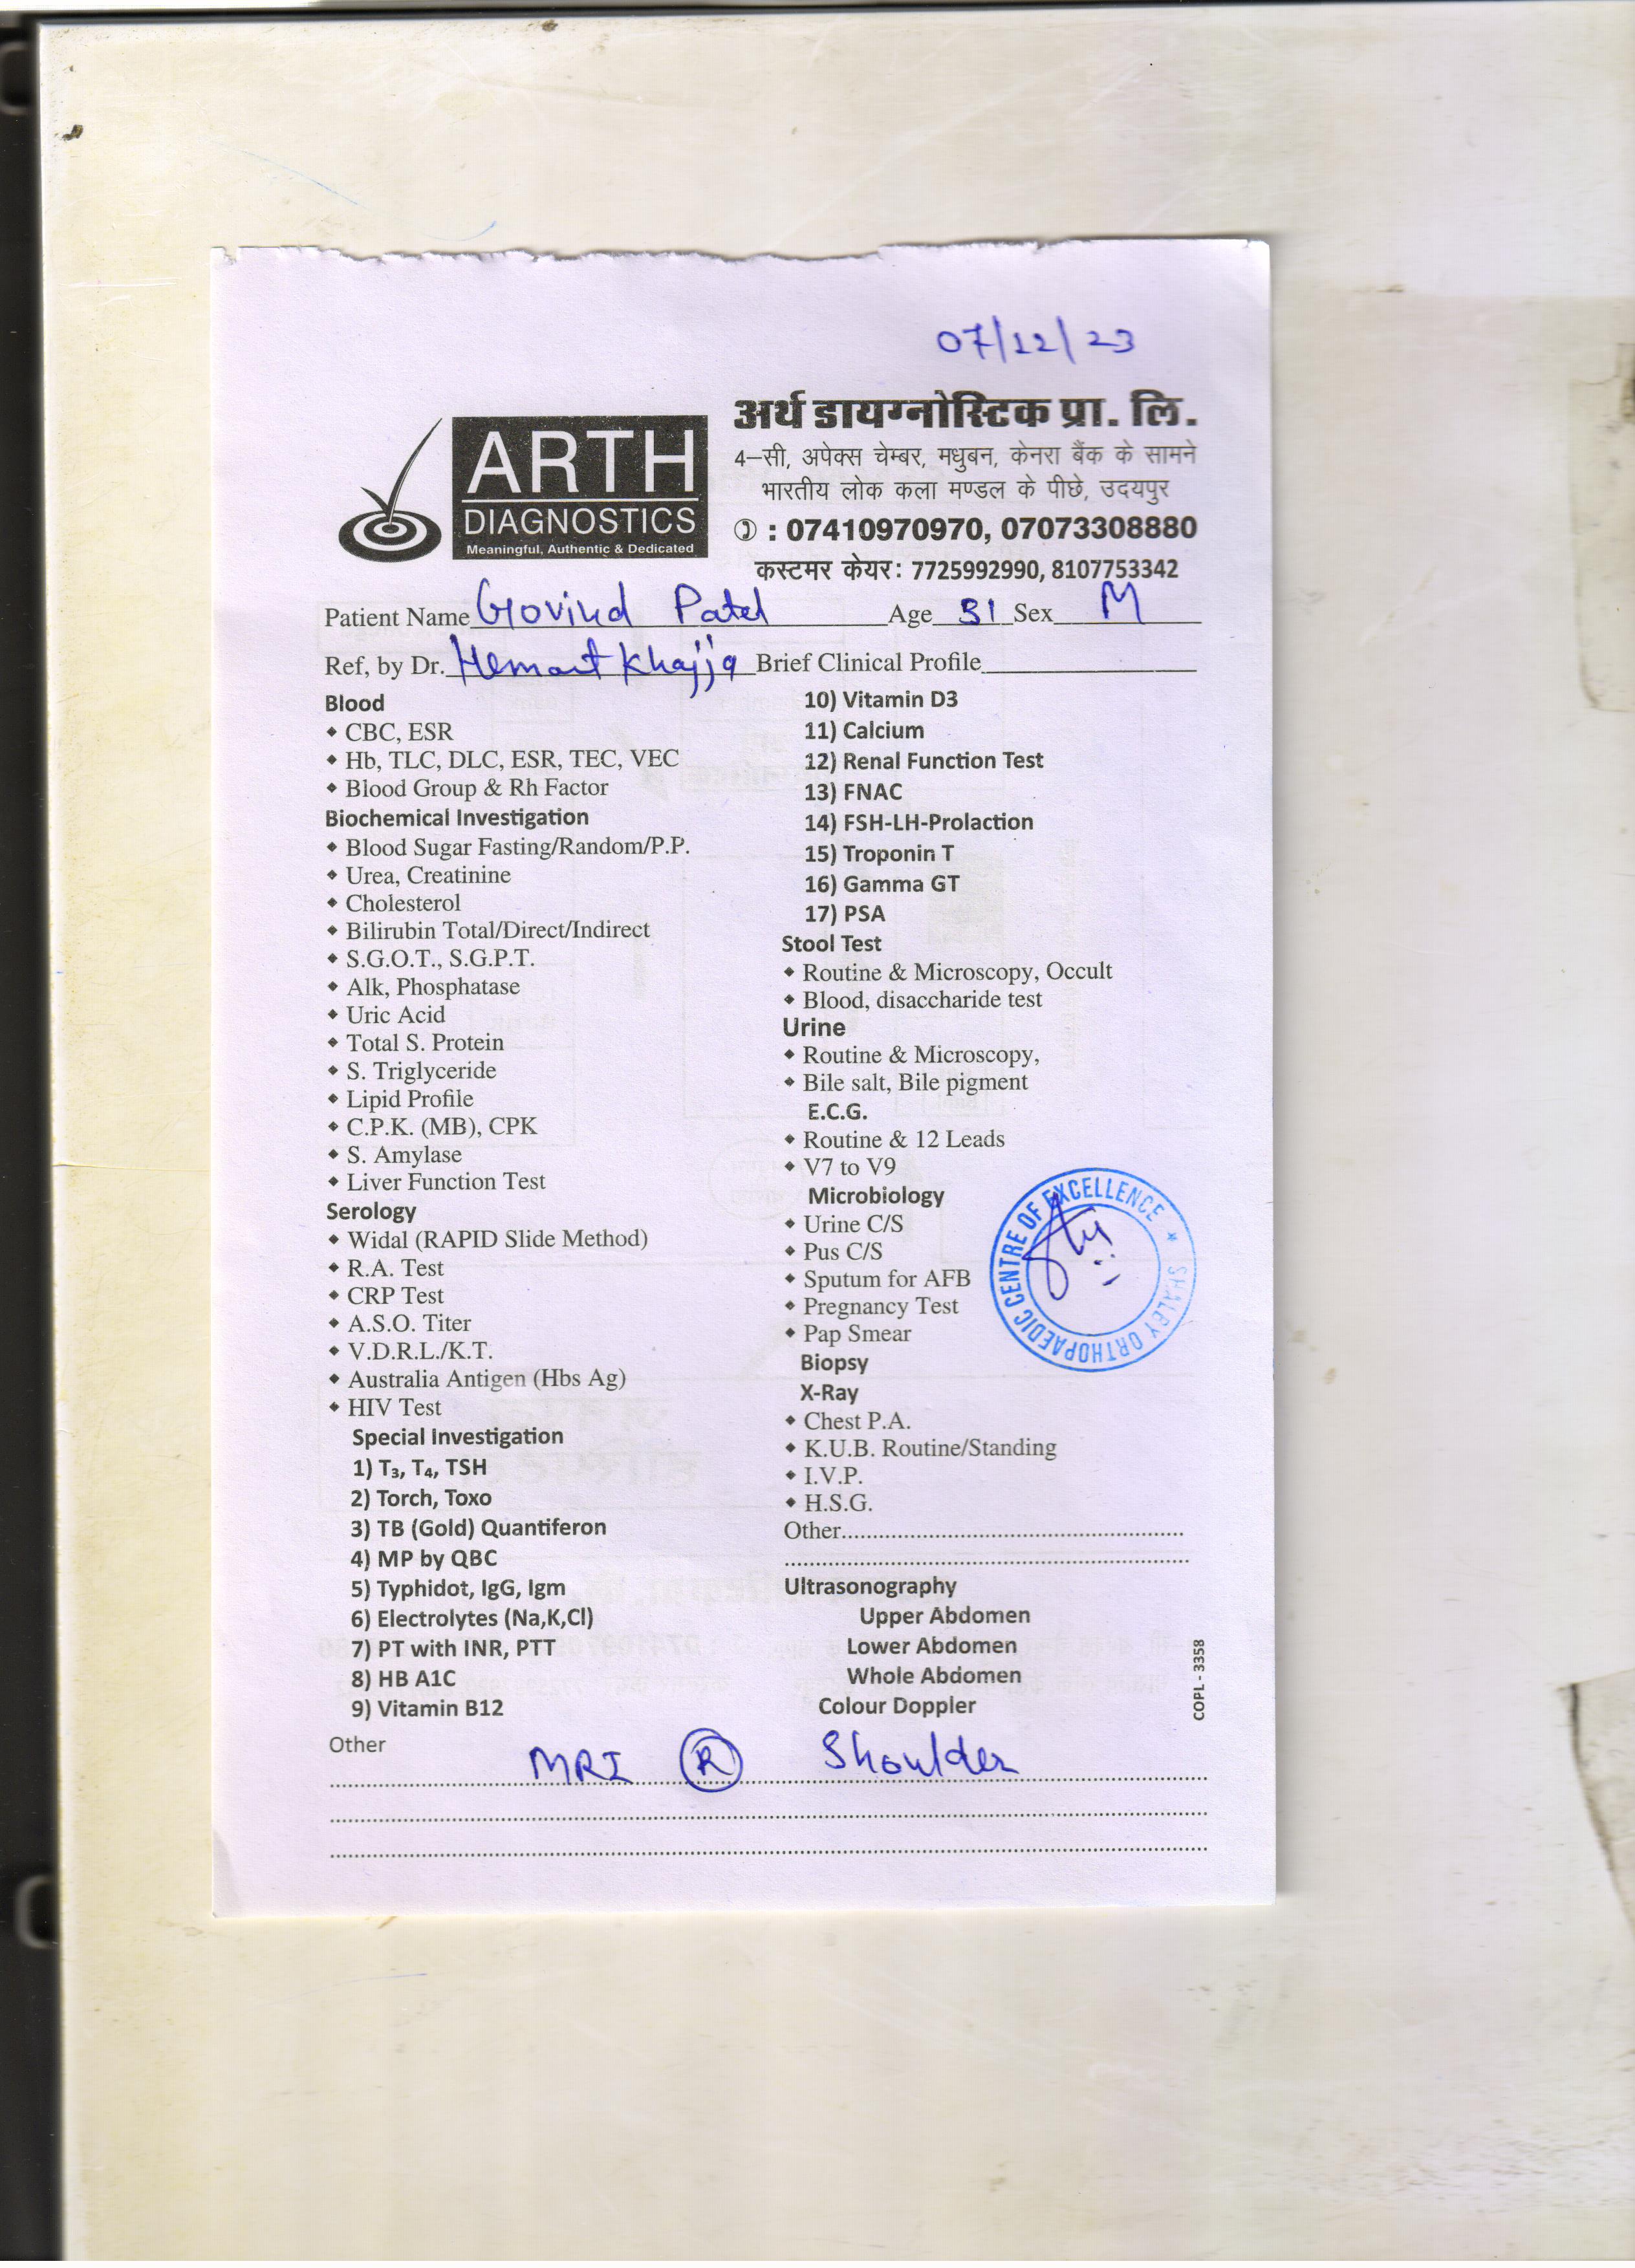 07/12/23
ARTH
DIAGNOSTICS
Meaningful, Authentic & Dedicated
अर्थ डायग्नोस्टिक प्रा. लि.
4–सी, अपेक्स चेम्बर, मधुबन, केनरा बैंक के सामने
भारतीय लोक कला मण्डल के पीछे, उदयपुर
✆ : 07410970970, 07073308880
कस्टमर केयर: 7725992990, 8107753342
Patient Name Govind Patel Age 31 Sex M
Ref, by Dr. Hemant Khajja Brief Clinical Profile
Blood
CBC, ESR
Hb, TLC, DLC, ESR, TEC, VEC
Blood Group & Rh Factor
Biochemical Investigation
Blood Sugar Fasting/Random/P.P.
Urea, Creatinine
Cholesterol
Bilirubin Total/Direct/Indirect
S.G.O.T., S.G.P.T.
Alk, Phosphatase
Uric Acid
Total S. Protein
S. Triglyceride
Lipid Profile
C.P.K. (MB), CPK
S. Amylase
Liver Function Test
Serology
Widal (RAPID Slide Method)
R.A. Test
CRP Test
A.S.O. Titer
V.D.R.L./K.T.
Australia Antigen (Hbs Ag)
HIV Test
Special Investigation
1) T₃, T₄, TSH
2) Torch, Toxo
3) TB (Gold) Quantiferon
4) MP by QBC
5) Typhidot, IgG, Igm
6) Electrolytes (Na,K,Cl)
7) PT with INR, PTT
8) HB A1C
9) Vitamin B12
10) Vitamin D3
11) Calcium
12) Renal Function Test
13) FNAC
14) FSH-LH-Prolaction
15) Troponin T
16) Gamma GT
17) PSA
Stool Test
Routine & Microscopy, Occult
Blood, disaccharide test
Urine
Routine & Microscopy,
Bile salt, Bile pigment
E.C.G.
Routine & 12 Leads
V7 to V9
Microbiology
Urine C/S
Pus C/S
Sputum for AFB
Pregnancy Test
Pap Smear
Biopsy
X-Ray
Chest P.A.
K.U.B. Routine/Standing
I.V.P.
H.S.G.
Other
Ultrasonography
Upper Abdomen
Lower Abdomen
Whole Abdomen
Colour Doppler
SHALBY ORTHOPAEDIC CENTRE OF EXCELLENCE *
COPL - 3358
Other
MRI R Shoulder